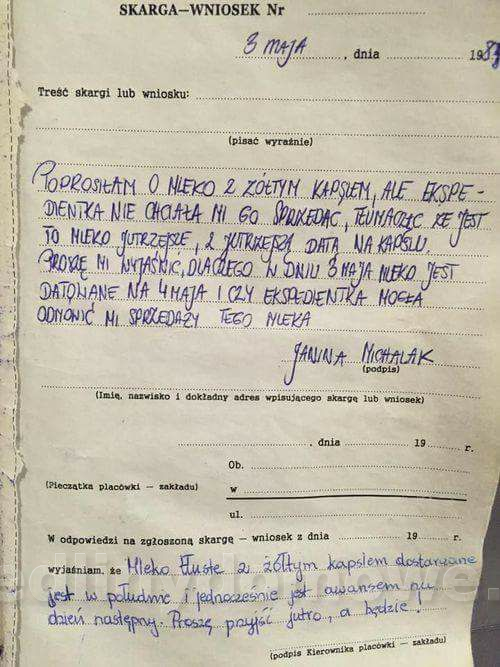 SKARGA—WNIOSEK Nr
3 MAJA, dnia 198
Treść skargi lub wniosku:
(pisać wyraźnie)
POPROSIŁAM O MLEKO Z ŻÓŁTYM KAPSLEM, ALE EKSPE-
DIENTKA NIE CHCIAŁA MI GO SPRZEDAĆ, TŁUMACZĄC ŻE JEST
TO MLEKO JUTRZEJSZE, Z JUTRZEJSZĄ DATĄ NA KAPSLU.
PROSZĘ MI WYJAŚNIĆ, DLACZEGO W DNIU 3 MAJA MLEKO JEST
DATOWANE NA 4 MAJA I CZY EKSPEDIENTKA MOGŁA
ODMÓWIĆ MI SPRZEDAŻY TEGO MLEKA
JANINA MICHALAK
(podpis)
(Imię, nazwisko i dokładny adres wpisującego skargę lub wniosek)
, dnia 19 r.
Ob.
(Pieczątka placówki — zakładu)
w
ul.
W odpowiedzi na zgłoszoną skargę — wniosek z dnia 19 r.
wyjaśniam, że Mleko tłuste z żółtym kapslem dostarczane
jest w południe i jednocześnie jest awansem na
dzień następny. Proszę przyjść jutro, a będzie!
(podpis Kierownika placówki — zakładu)